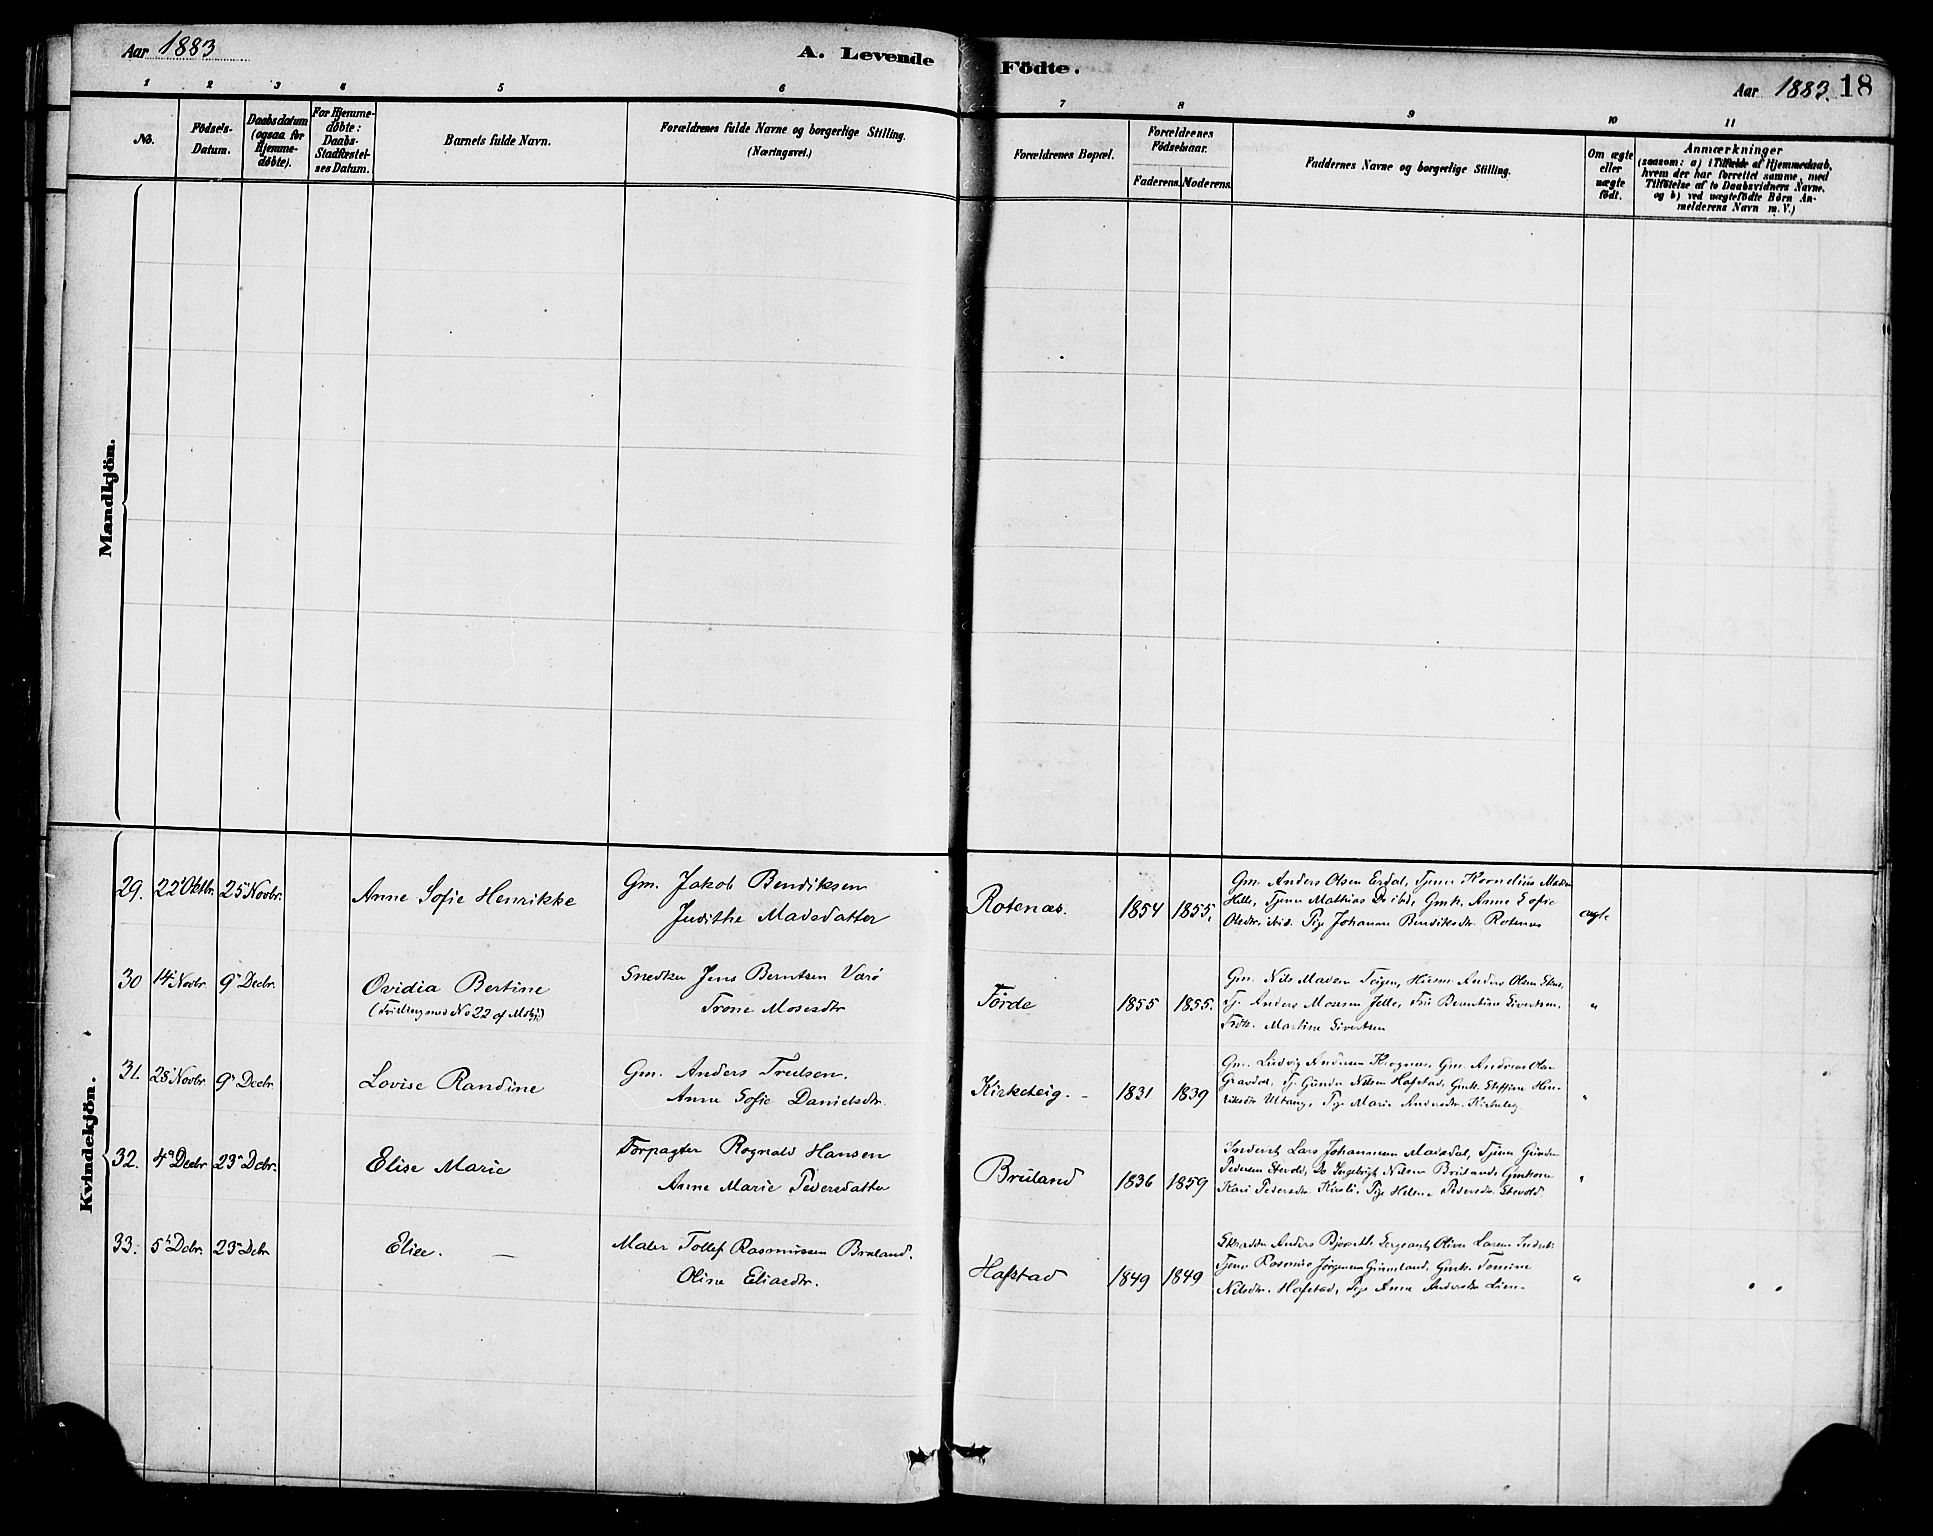 Aar 1883
A. Levende Födte.
Aar 1883. 18
1 2 3 4 5 6 7 8 9 10 11
No.
Födsels-Datum.
Daabsdatum (ogsaa for Hjemme-döbte).
For Hjemme-döbte: Daabs-Stadfæstel-ses Datum.
Barnets fulde Navn.
Forældrenes fulde Navne og borgerlige Stilling.
(Næringsvei.)
Forældrenes Bopæl.
Forældrenes Födselsaar.
Faderens. Moderens.
Faddernes Navne og borgerlige Stilling.
Om ægte eller uægte födt.
Anmærkninger
(saasom: a) i Tilfælde af Hjemmedaab,
hvem der har forrettet samme, med
Tilföielse af to Daabsvidners Navne,
og b) ved uægtefödte Börn An-
melderens Navn m. V.)
Mandkjön.
Kvindekjön.
29. 22 Oktbr. 25 Novbr. Anne Sofie Henrikke
Gm. Jakob Bendiksen
Judithe Madsdatter
Rotenæs. 1854 1855.
Gm. Anders Olsen Erdal, Tjener Kornelius Madsen
Hille, Tjener Mathias Do ibd, Gmk. Anne Sofie
Olsdtr. ibid. Pige Johanne Bendiksdtr. Rotenæs
ægte
30 14 Novbr. 9 Decbr. Ovidia Bertine
(Tvilling med No 22 af Mandkj)
Snedker Jens Berntsen Værö
Trone Mosesdtr
Förde 1855 1855.
Gm. Nils Madsen Teigen, Husm. Anders Olsen
Tj. Anders Monsen Jelle, Frk. Berentine Sivertsen,
Frk. Martine Sivertsen
"
31. 28 Novbr 9 Decbr Lovise Randine
Gm. Anders Trulsen.
Anne Sofie Danielsdtr.
Kirketeig. - 1831 1839
Gm. Ludvig Andersen Gm. Andreas Olsen
Gravdal, Tj. Gunder Nilsen Hafstad, Gmk. Steffine Hen-
riksdtr Pige Marie Andersdtr. Kirketeig
"
32. 4 Decbr 23 Dcbr. Elise Marie
Forpagter Rognald Hansen
Anne Marie Pedersdatter
Bruland 1836 1859
Inderst Lars Johannesen Tjener Gunder
Pedersen Stevold, Do Ingebrigt Nilsen Bruland, Gmkone
Kari Pedersdtr. Pige Helene Pedersdtr. Stevold
"
33. 5 Dcbr. 23 Dcbr Elise. —
Maler Tollef Rasmussen Bruland.
Oline Eliasdtr.
Hafstad 1849 1849
Skrædder Anders Sergeant Oliver Larsen
Tjener Rasmus Jørgensen Gmk. Tomine
Nilsdtr. Hafstad, Pige Anne Andersdtr Lien-
"